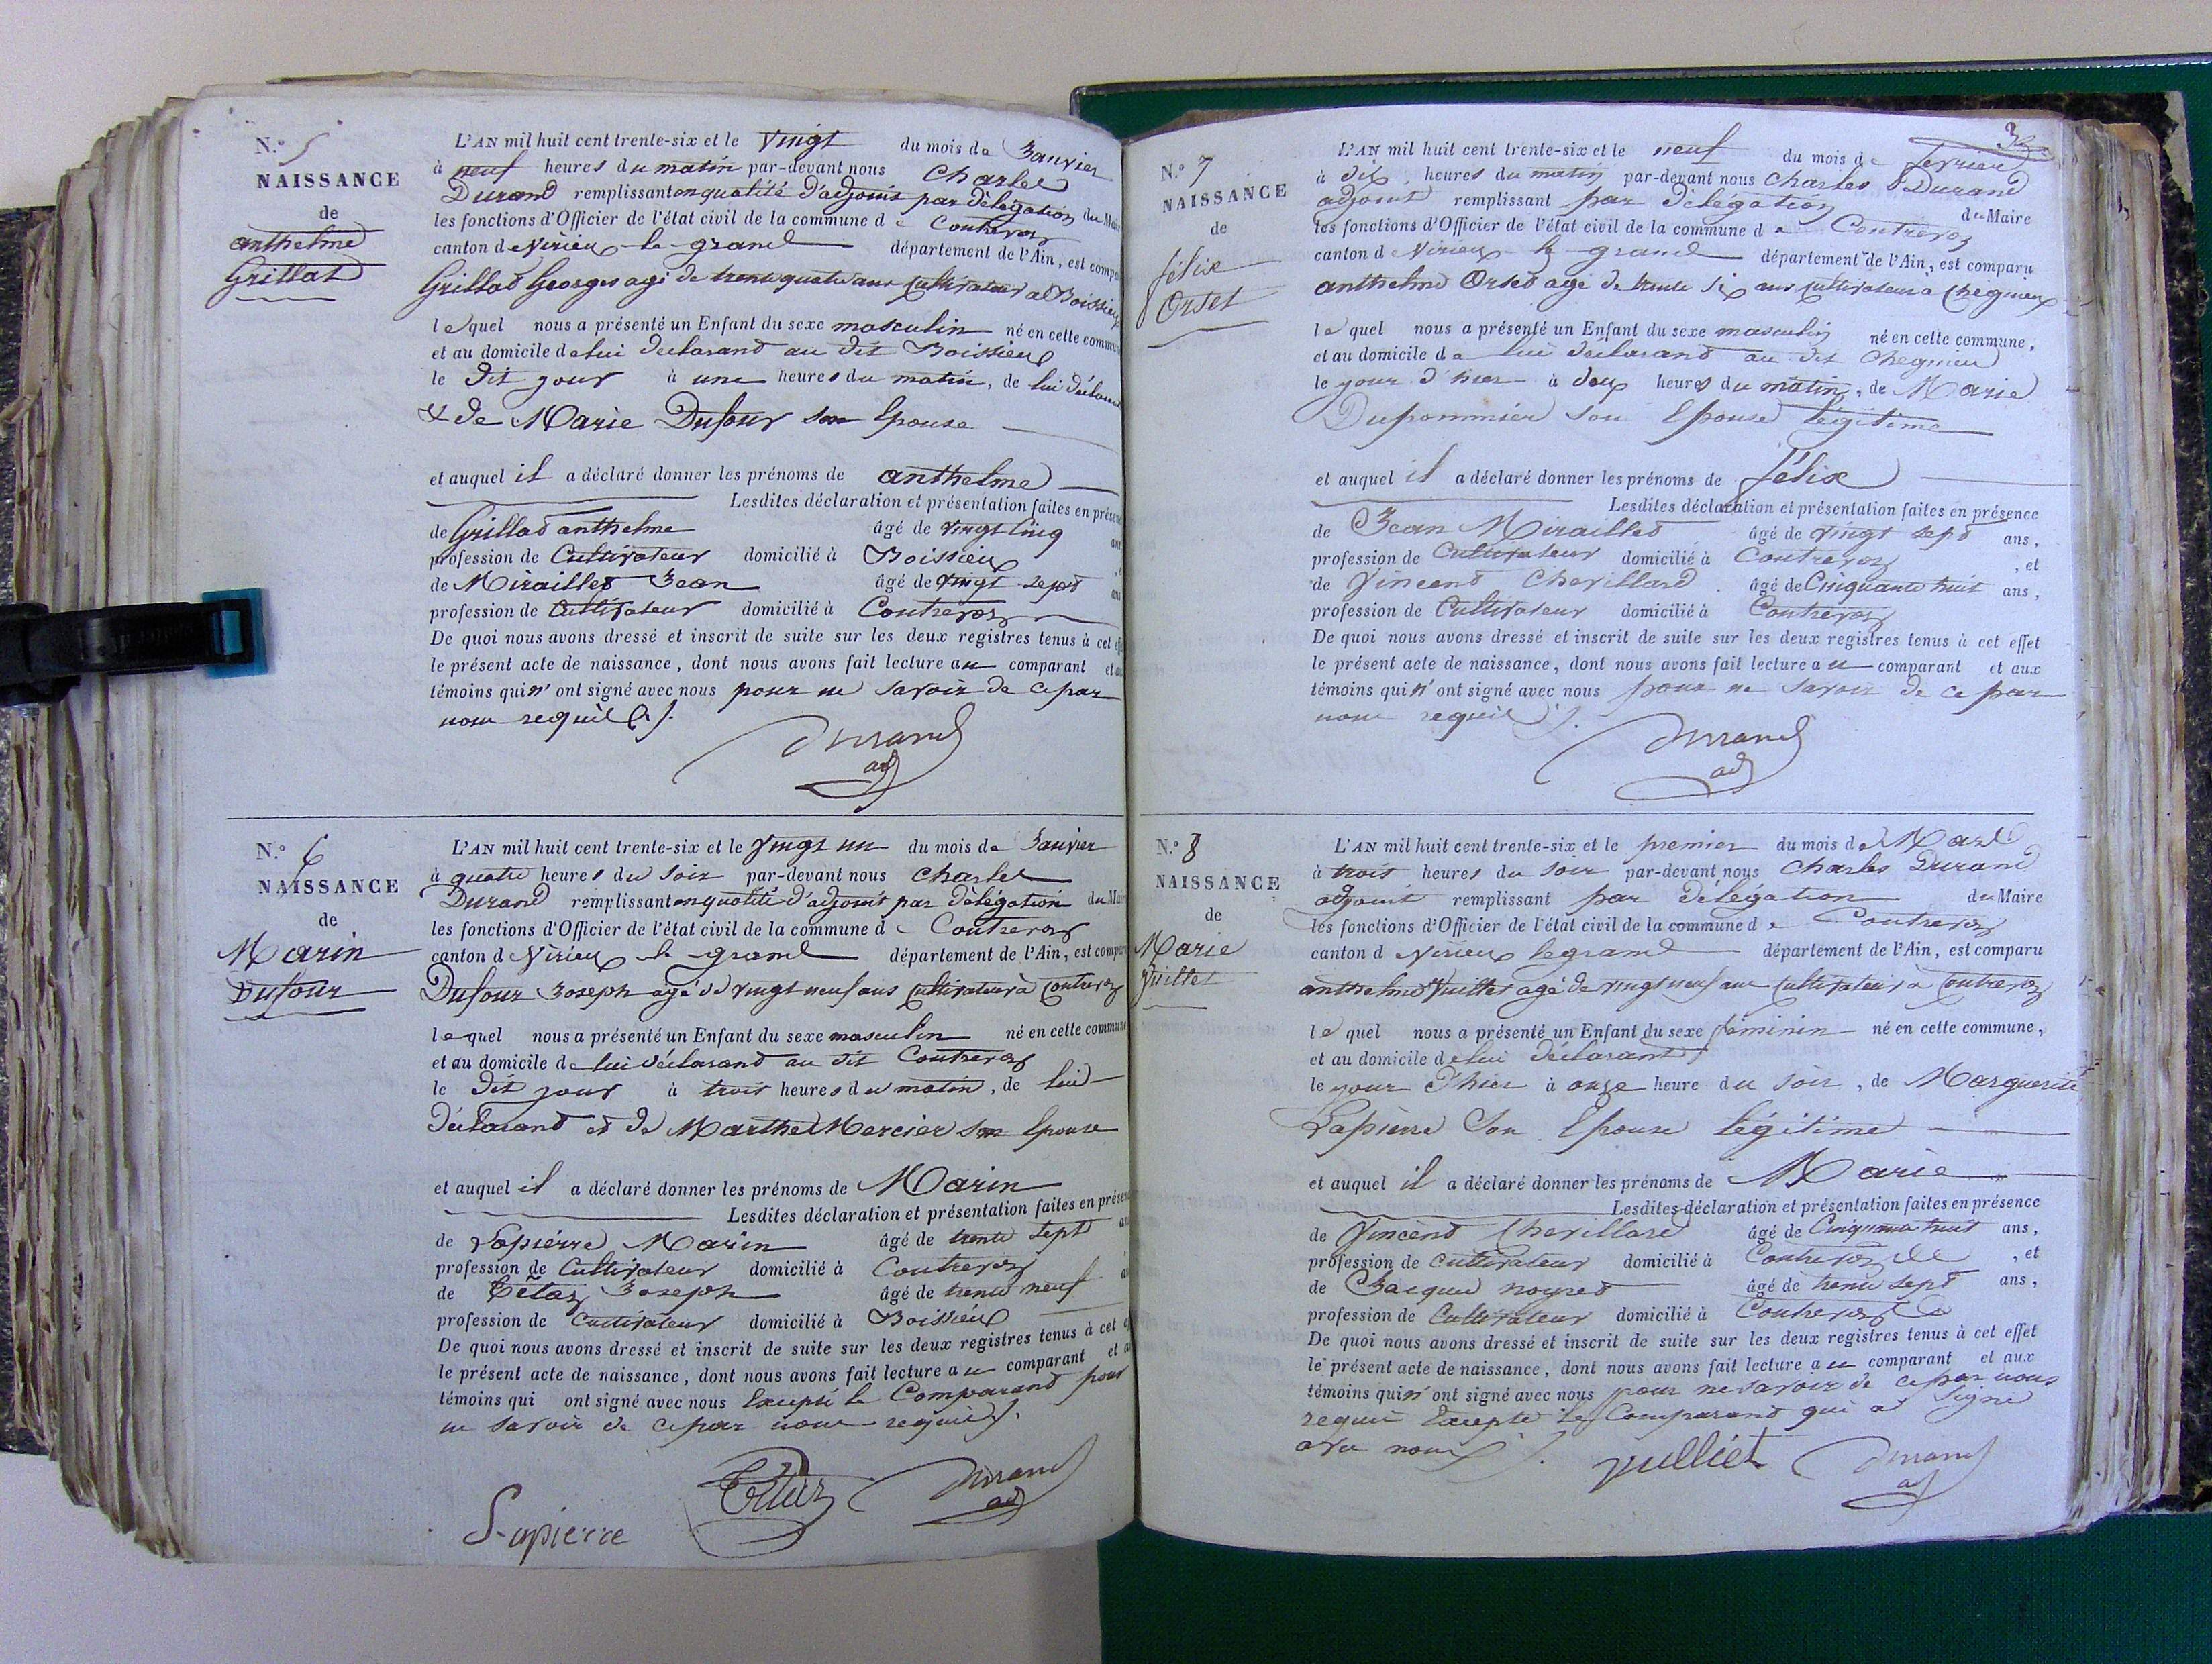 N.º 5
NAISSANCE
de
anthelme
Grillat
L'AN mil huit cent trente-six et le vingt du mois de Janvier
à neuf heures du matin par-devant nous Charles
Durand remplissant en qualité d'adjoint par délégation du Maire
les fonctions d'Officier de l'état civil de la commune de Contrevoz
canton de Virieu-le-grand département de l'Ain, est comparu
Grillat Georges agé de trente quatre ans Cultivateur a Boissieu
lequel nous a présenté un Enfant du sexe masculin né en cette commune
et au domicile de lui declarant au dit Boissieu
le dit jour à une heures du matin, de lui déclarant
& de Marie Dufour son Epouse
et auquel il a déclaré donner les prénoms de anthelme
Lesdites déclaration et présentation faites en présence
de Grillat anthelme âgé de vingt Cinq ans
profession de Cultivateur domicilié à Boissieu
de Miraillet Jean âgé de vingt sept ans
profession de Cultivateur domicilié à Contrevoz
De quoi nous avons dressé et inscrit de suite sur les deux registres tenus à cet effet
le présent acte de naissance, dont nous avons fait lecture au comparant et aux
témoins qui n'ont signé avec nous pour ne savoir de ce par
nous requis
Durand
adj
N.º 6
NAISSANCE
de
Marin
Dufour
L'AN mil huit cent trente-six et le vingt un du mois de Janvier
à quatre heures du soir par-devant nous Charles
Durand remplissant en qualité d'adjoint par délégation du Maire
les fonctions d'Officier de l'état civil de la commune de Contrevoz
canton de Virieu le grand département de l'Ain, est comparu
Dufour Joseph agé de vingt neuf ans Cultivateur à Contrevoz
lequel nous a présenté un Enfant du sexe masculin né en cette commune
et au domicile de lui déclarant au dit Contrevoz
le dit jour à trois heures du matin, de lui
déclarant et de Marthe Mercier son Epouse
et auquel il a déclaré donner les prénoms de Marin
Lesdites déclaration et présentation faites en présence
de Lapierre Marin âgé de trente sept ans
profession de Cultivateur domicilié à Contrevoz
de Tétaz Joseph âgé de trente neuf
profession de Cultivateur domicilié à Boissieu
De quoi nous avons dressé et inscrit de suite sur les deux registres tenus à cet effet
le présent acte de naissance, dont nous avons fait lecture au comparant et aux
témoins qui ont signé avec nous Excepté le Comparant pour
ne savoir de ce par nous requis
Lapierre Tétaz Durand
adj
N.º 7
NAISSANCE
de
félix
Orset
L'AN mil huit cent trente-six et le neuf du mois de fevrier
à dix heures du matin par-devant nous Charles Durand
adjoint remplissant par délégation du Maire
les fonctions d'Officier de l'état civil de la commune de Contrevoz
canton de Virieu-le grand département de l'Ain, est comparu
anthelme Orset agé de trente six ans cultivateur a Chegnieu
lequel nous a présenté un Enfant du sexe masculin né en cette commune,
et au domicile de lui declarant au dit Chegnieu
le jour d'hier à deux heures du matin, de Marie
Dupommier son Epouse légitime
et auquel il a déclaré donner les prénoms de félix
Lesdites déclaration et présentation faites en présence
de Jean Miraillet âgé de vingt sept ans,
profession de Cultivateur domicilié à Contrevoz, et
de Vincent Chevillard âgé de Cinquante huit ans,
profession de Cultivateur domicilié à Contrevoz
De quoi nous avons dressé et inscrit de suite sur les deux registres tenus à cet effet
le présent acte de naissance, dont nous avons fait lecture au comparant et aux
témoins qui n'ont signé avec nous pour ne savoir de ce par
nous requis
Durand
adj
N.º 8
NAISSANCE
de
Marie
Vuillet
L'AN mil huit cent trente-six et le premier du mois de Mars
à trois heures du soir par-devant nous Charles Durand
adjoint remplissant par délégation du Maire
les fonctions d'Officier de l'état civil de la commune de Contrevoz
canton de Virieu le grand département de l'Ain, est comparu
anthelme Vuillet agé de vingt neuf ans Cultivateur a Contrevoz
lequel nous a présenté un Enfant du sexe féminin né en cette commune,
et au domicile de lui déclarant
le jour d'hier à onze heure du soir, de Marguerite
Lapierre Son Epouse légitime
et auquel il a déclaré donner les prénoms de Marie
Lesdites déclaration et présentation faites en présence
de Vincent Chevillard âgé de Cinquante huit ans,
profession de cultivateur domicilié à Contrevoz, et
de Jacques noyret âgé de trente sept ans,
profession de Cultivateur domicilié à Contrevoz
De quoi nous avons dressé et inscrit de suite sur les deux registres tenus à cet effet
le présent acte de naissance, dont nous avons fait lecture au comparant et aux
témoins qui n'ont signé avec nous pour ne savoir de ce par nous
requis Excepté le Comparant qui a signé
avec nous
vulliet Durand
adj